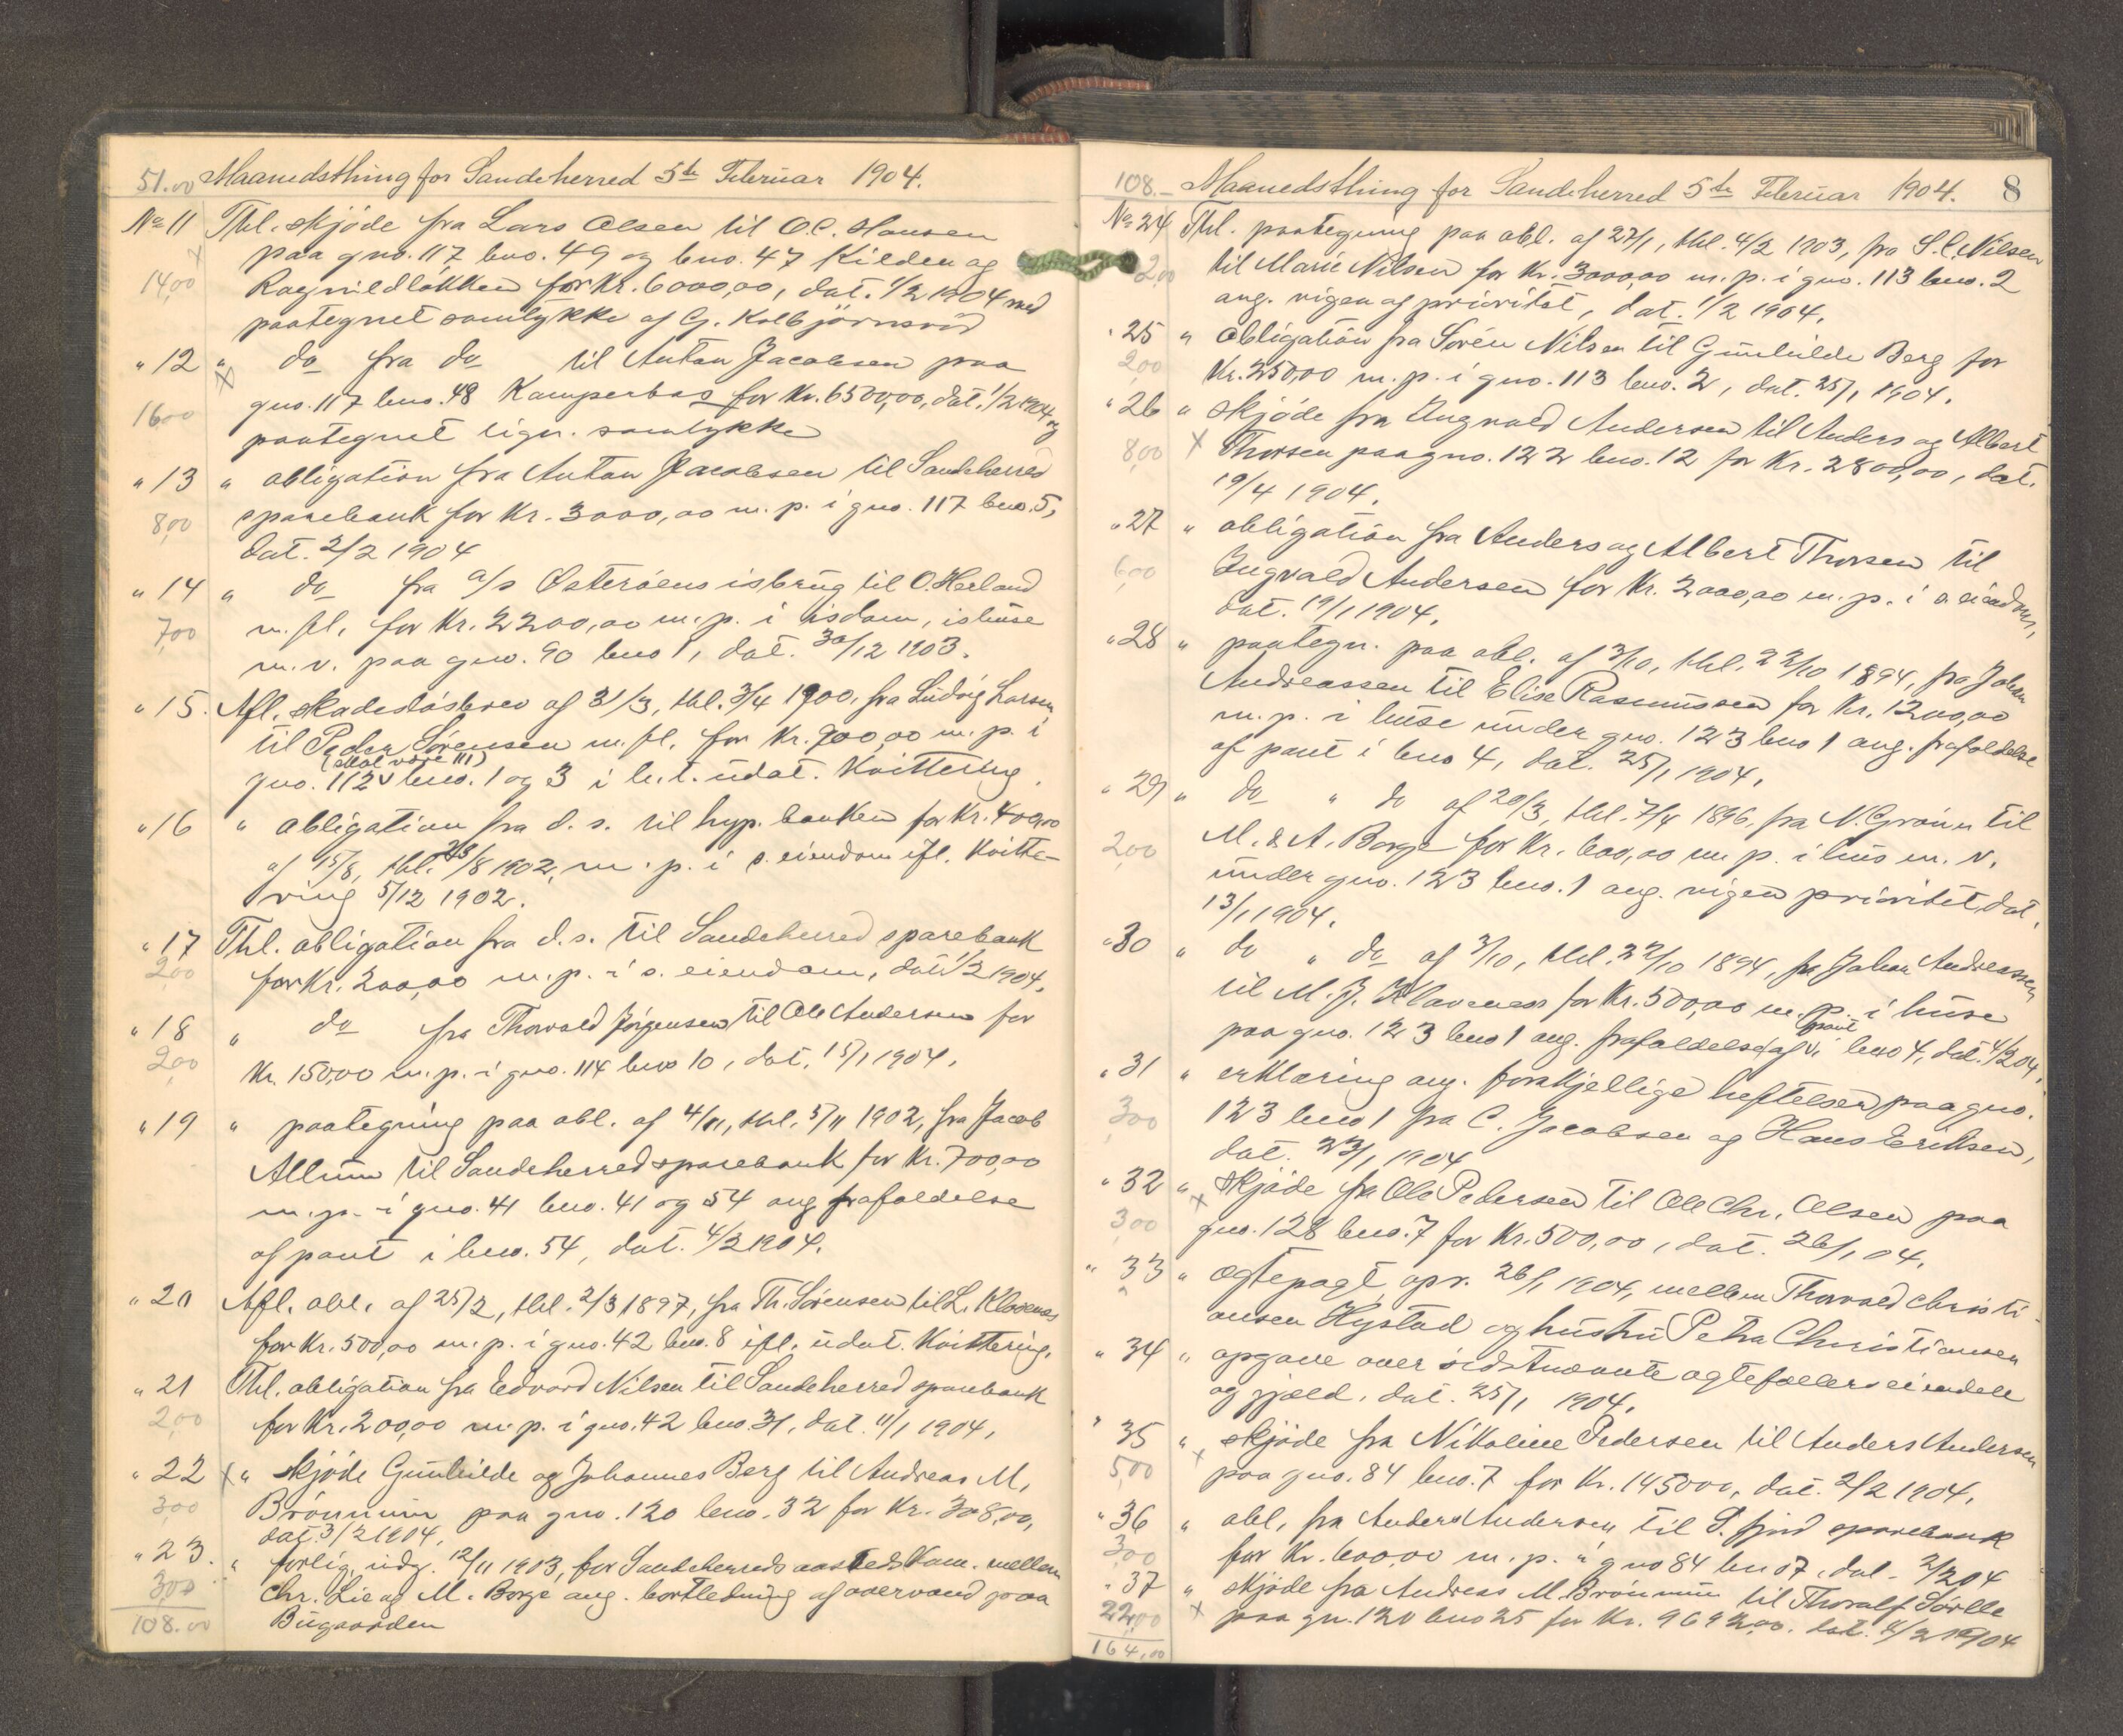 51.00 Maanedsthing for Sandeherred 5te Februar 1904.
No 11 Thl. skjøde fra Lars Olsen til O.C. Hansen
paa gno. 117 bno. 49 og bno. 47 Kilden og
14,00 Ragnildløkken for Kr. 6000,00, dat. 1/2 1904 med
paategnet samtykke af G. Kolbjørnsrød
" 12 " do fra do til Anton Jacobsen paa
gno. 117 bno. 48 Kamperbas for Kr. 6500,00, dat. 1/2 1904 og
16,00 paategnet lign. samtykke
" 13 " obligation fra Anton Jacobsen til Sandeherred
8,00 sparebank for Kr. 3000,00 m. p. i gno. 117 bno. 5,
dat. 2/2 1904
" 14 " do fra a/s Østerøens isbrug til O. Herland
7,00 m. fl. for Kr. 2200,00 m. p. i isdam, ishuse
m. v. paa gno. 90 bno 1, dat. 30/12 1903.
" 15. Afl. skadesløsbrev af 31/3, thl. 3/4 1900, fra Ludvig Larsen
til Peder Sørensen m. fl. for Kr. 900,00 m. p. i
(skal være 111)
gno. 112 v bno. 1 og 3 i h. t. udat. Kvittering.
" 16 " obligation fra d. s. til hyp. banken for Kr. 400,00
af 15/8, thl. 23/8 1902, m. p. i s. eiendom ifl. Kvitte-
ring 5/12 1902.
" 17 Thl. obligation fra d. s. til Sandeherred sparebank
2,00 for Kr. 200,00 m. p. i s. eiendom, dat. 1/2 1904.
" 18 " do fra Thorvald Jørgensen til Ole Andersen for
2,00 Kr. 150,00 m. p. i gno. 114 bno 10, dat. 15/1 1904.
" 19 " paategning paa obl. af 4/11, thl. 5/11 1902, fra Jacob
Allum til Sandeherred sparebank for Kr. 700,00
m. p. i gno. 41 bno. 41 og 54 ang. frafaldelse
af pant i bno. 54, dat. 4/2 1904.
" 20 Afl. obl. af 25/2, thl. 2/3 1897, fra Th. Sørensen til L. Klavenæs
for Kr. 500,00 m. p. i gno. 42 bno. 8 ifl. udat. Kvittering.
" 21 Thl. obligation fra Edvard Nilsen til Sandeherred sparebank
2,00 for Kr. 200,00 m. p. i gno. 42 bno. 31, dat. 11/1 1904.
" 22 x " skjøde Gunhilde og Johannes Berg til Andreas M.
3,00 Brønnum paa gno. 120 bno. 32 for Kr. 308,00,
dat. 3/2 1904.
" 23. " forlig, udg. 12/11 1903, for Sandeherreds aasteds Kom. mellem
3,00 Chr. Lie og M. Borge ang. bortledning af overvand paa
108.00 Bugaarden
108.- Maanedsthing for Sandeherred 5te Februar 1904. 8
No 24 Thl. paategning paa obl. af 27/1, thl. 4/2 1903, fra S. C. Nilsen
2,00 til Marie Nilsen for Kr. 3000,00 m. p. i gno. 113 bno. 2
ang. vigen af prioritet, dat. 1/2 1904.
" 25 " obligation fra Søren Nilsen til Gunhilde Berg for
2,00 Kr. 250,00 m. p. i gno. 113 bno. 2, dat. 25/1 1904.
" 26 " skjøde fra Ingvald Andersen til Anders og Albert
8,00 x Thorsen paa gno. 122 bno. 12 for Kr. 2800,00, dat.
19/4 1904.
" 27 " obligation fra Anders og Albert Thorsen til
6,00 Ingvald Andersen for Kr. 2000,00 m. p. i s. eiendom,
dat. 19/1 1904.
" 28 " paategn. paa obl. af 3/10, thl. 22/10 1894, fra Johan
Andreassen til Elise Rasmussen for Kr. 1200,00
m. p. i huse under gno. 123 bno 1 ang. frafaldelse
af pant i bno 4, dat. 25/1 1904.
" 29 " do " do af 20/3, thl. 7/4 1896, fra N. Grønn til
2,00 M. & A. Borge for Kr. 600,00 m p. i hus m. v.
under gno. 123 bno. 1 ang. vigen prioritet, dat.
13/1 1904.
" 30 " do " do af 3/10, thl. 22/10 1894, fra Johan Andreassen
til M. J. Klavenæss for Kr. 500,00 m. p. i huse
pant
paa gno. 123 bno 1 ang. frafaldelse af v i bno 4, dat. 4/2 04.
" 31 " erklæring ang. forskjellige heftelser paa gno.
3,00 123 bno 1 fra C. Jacobsen og Hans Eriksen,
dat. 23/1 1904
" 32 " skjøde fra Ole Pedersen til Ole Chr. Olsen paa
3,00 x gno. 128 bno. 7 for Kr. 500,00, dat. 26/1 04.
" 33 " ægtepagt, opr. 26/1 1904, mellem Thorvald Christi-
ansen Hystad og hustru Petra Christiansen
" 34 " opgave over sidstnævnte ægtefællers eiendele
og gjæld, dat. 25/1 1904.
" 35 " skjøde fra Nikoline Pedersen til Anders Andersen
5,00 x paa gno. 84 bno. 7 for Kr. 1450,00, dat. 2/2 1904.
" 36 " obl. fra Anders Andersen til S. fjord sparebank
3,00 for Kr. 600,00 m. p. i gno 84 bno 7, dat. 2/2 04
" 37 " skjøde fra Andreas M. Brønnum til Thoralf Sørlle
22,00 x paa gn. 120 bno 25 for Kr. 9692,00. dat. 4/2 1904
164,00